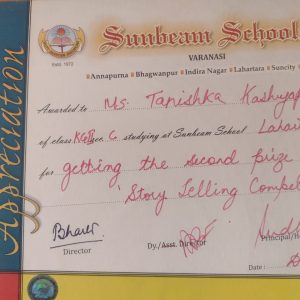 Appreciation
Sunbeam School
VARANASI
Annapurna Bhagwanpur Indira Nagar Lahartara Suncity
Estd. 1972
Awarded to Ms. Tanishka Kashyap
of class studying at Sunbeam School Lahar
for getting the second prize
'Story Telling Compe
Director
Dy./Asst. Director
Principal/H
Date :